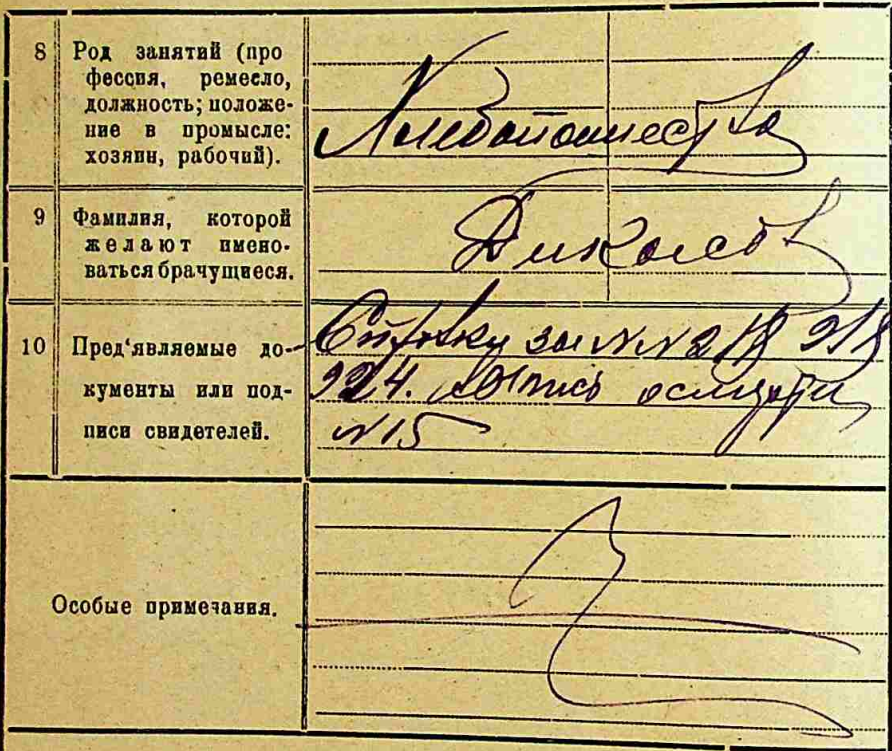 8 Род занятий (про
фессия, ремесло,
должность; положе-
ние в промысле:
хозяин, рабочий).
Хлебопашество
9 Фамилия, которой
желают имено-
ваться брачущиеся.
10 Пред'являемые до-
кументы или под-
писи свидетелей.
за №№ 218
924.
№ 15
Особые примечания.